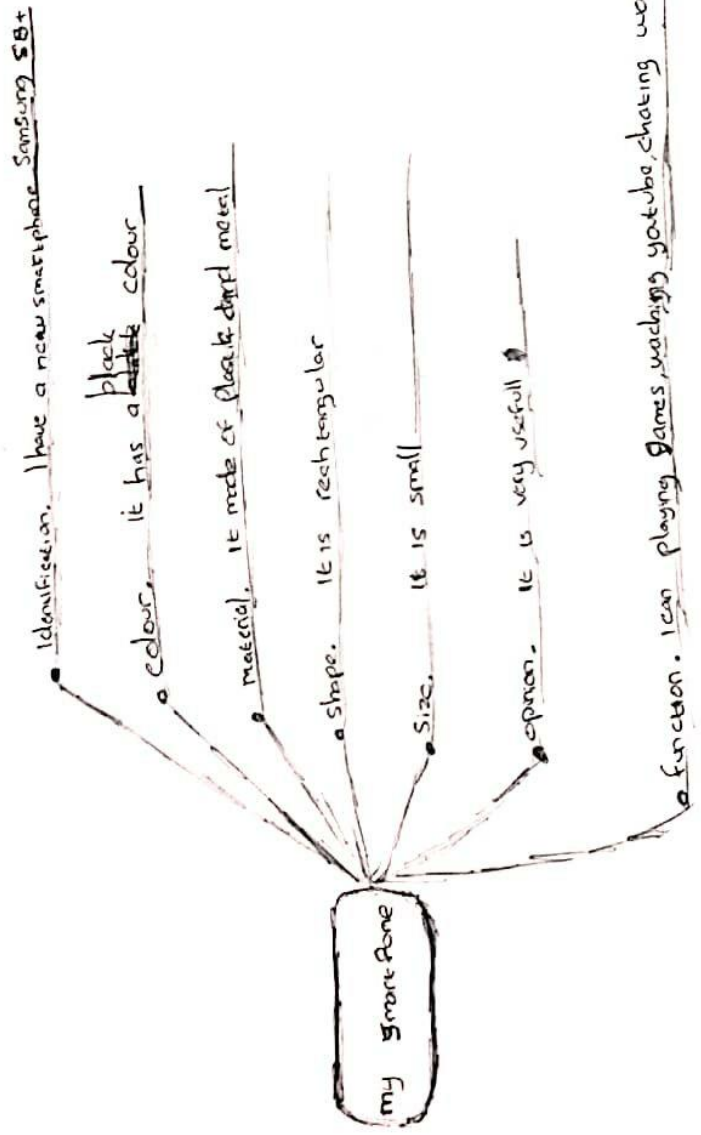 my smartfone
Identification. I have a new smartphone Samsung S8+
colour. it has a black colour
material. it made of plastik and metal
shape. It is rechtangular
Size. It is small
opinion. It is very usefull
function. I can playing games, waching youtube, chating